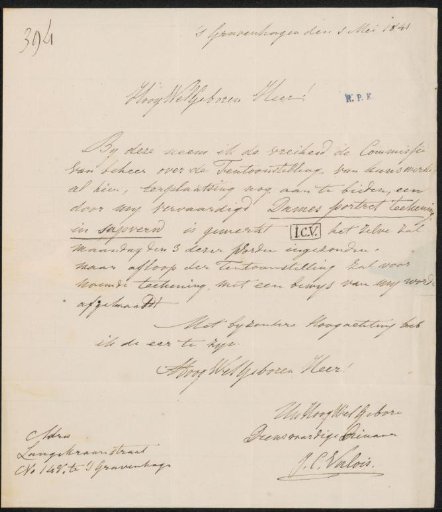 394
's Gravenhagen den 1 Mei 1841
HoogWelGeboren Heer!
R.P.K.
By deze neem ik de vreiheid de Commissie
van beheer over de Tentoonstelling van kunswerke
al hier, terplaatsing nog aan te bieden, een
door my vervaardigd Dames portret teekening
in sapverw is gemerkt I.C.V. het zelve zal
maandag den 3 dezer worden ingezonden.
naar afloop der tentoonstelling zal voor
noemde teekening met een bewys van my word
afgehaald
Met byzondere Hoogachting heb
ik de eer te zyn
HoogWelGeboren Heer!
UwHoogWelGebore
Dienaar
J.C. Valois.
Adres
Lange
No 148. te S Gravenhage